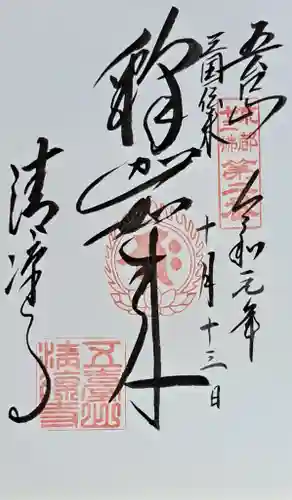 五台山
令和元年
三国伝来
十月十三日
釋迦如来
清凉寺
五臺山
清凉寺